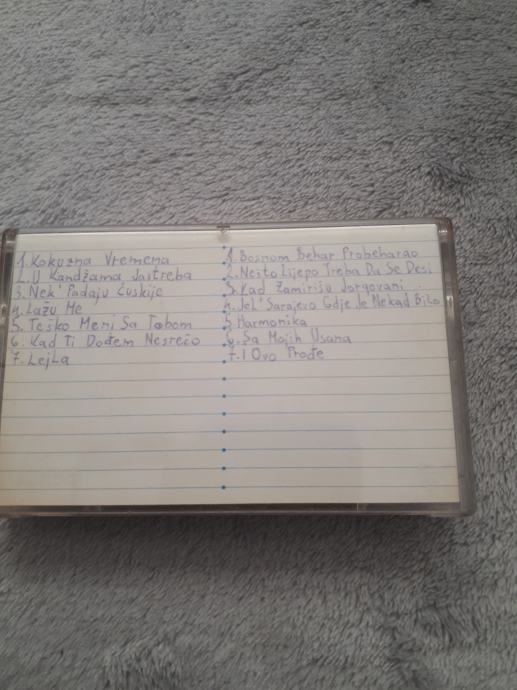 1. Kokuzna Vremena
2. U Kandžama Jastreba
3. Nek' Padaju Ćuskije
4. Lažu Me
5. Teško Meni Sa Tobom
6. Kad Ti Dođem Nesrećo
7. Lejla
1. Bosnom Behar Probeharao
2. Nešto Lijepo Treba Da Se Desi
3. Kad Zamirišu Jorgovani
4. Jel' Sarajevo Gdje Je Nekad Bilo
5. Harmonika
6. Sa Mojih Usana
7. I Ovo Prođe